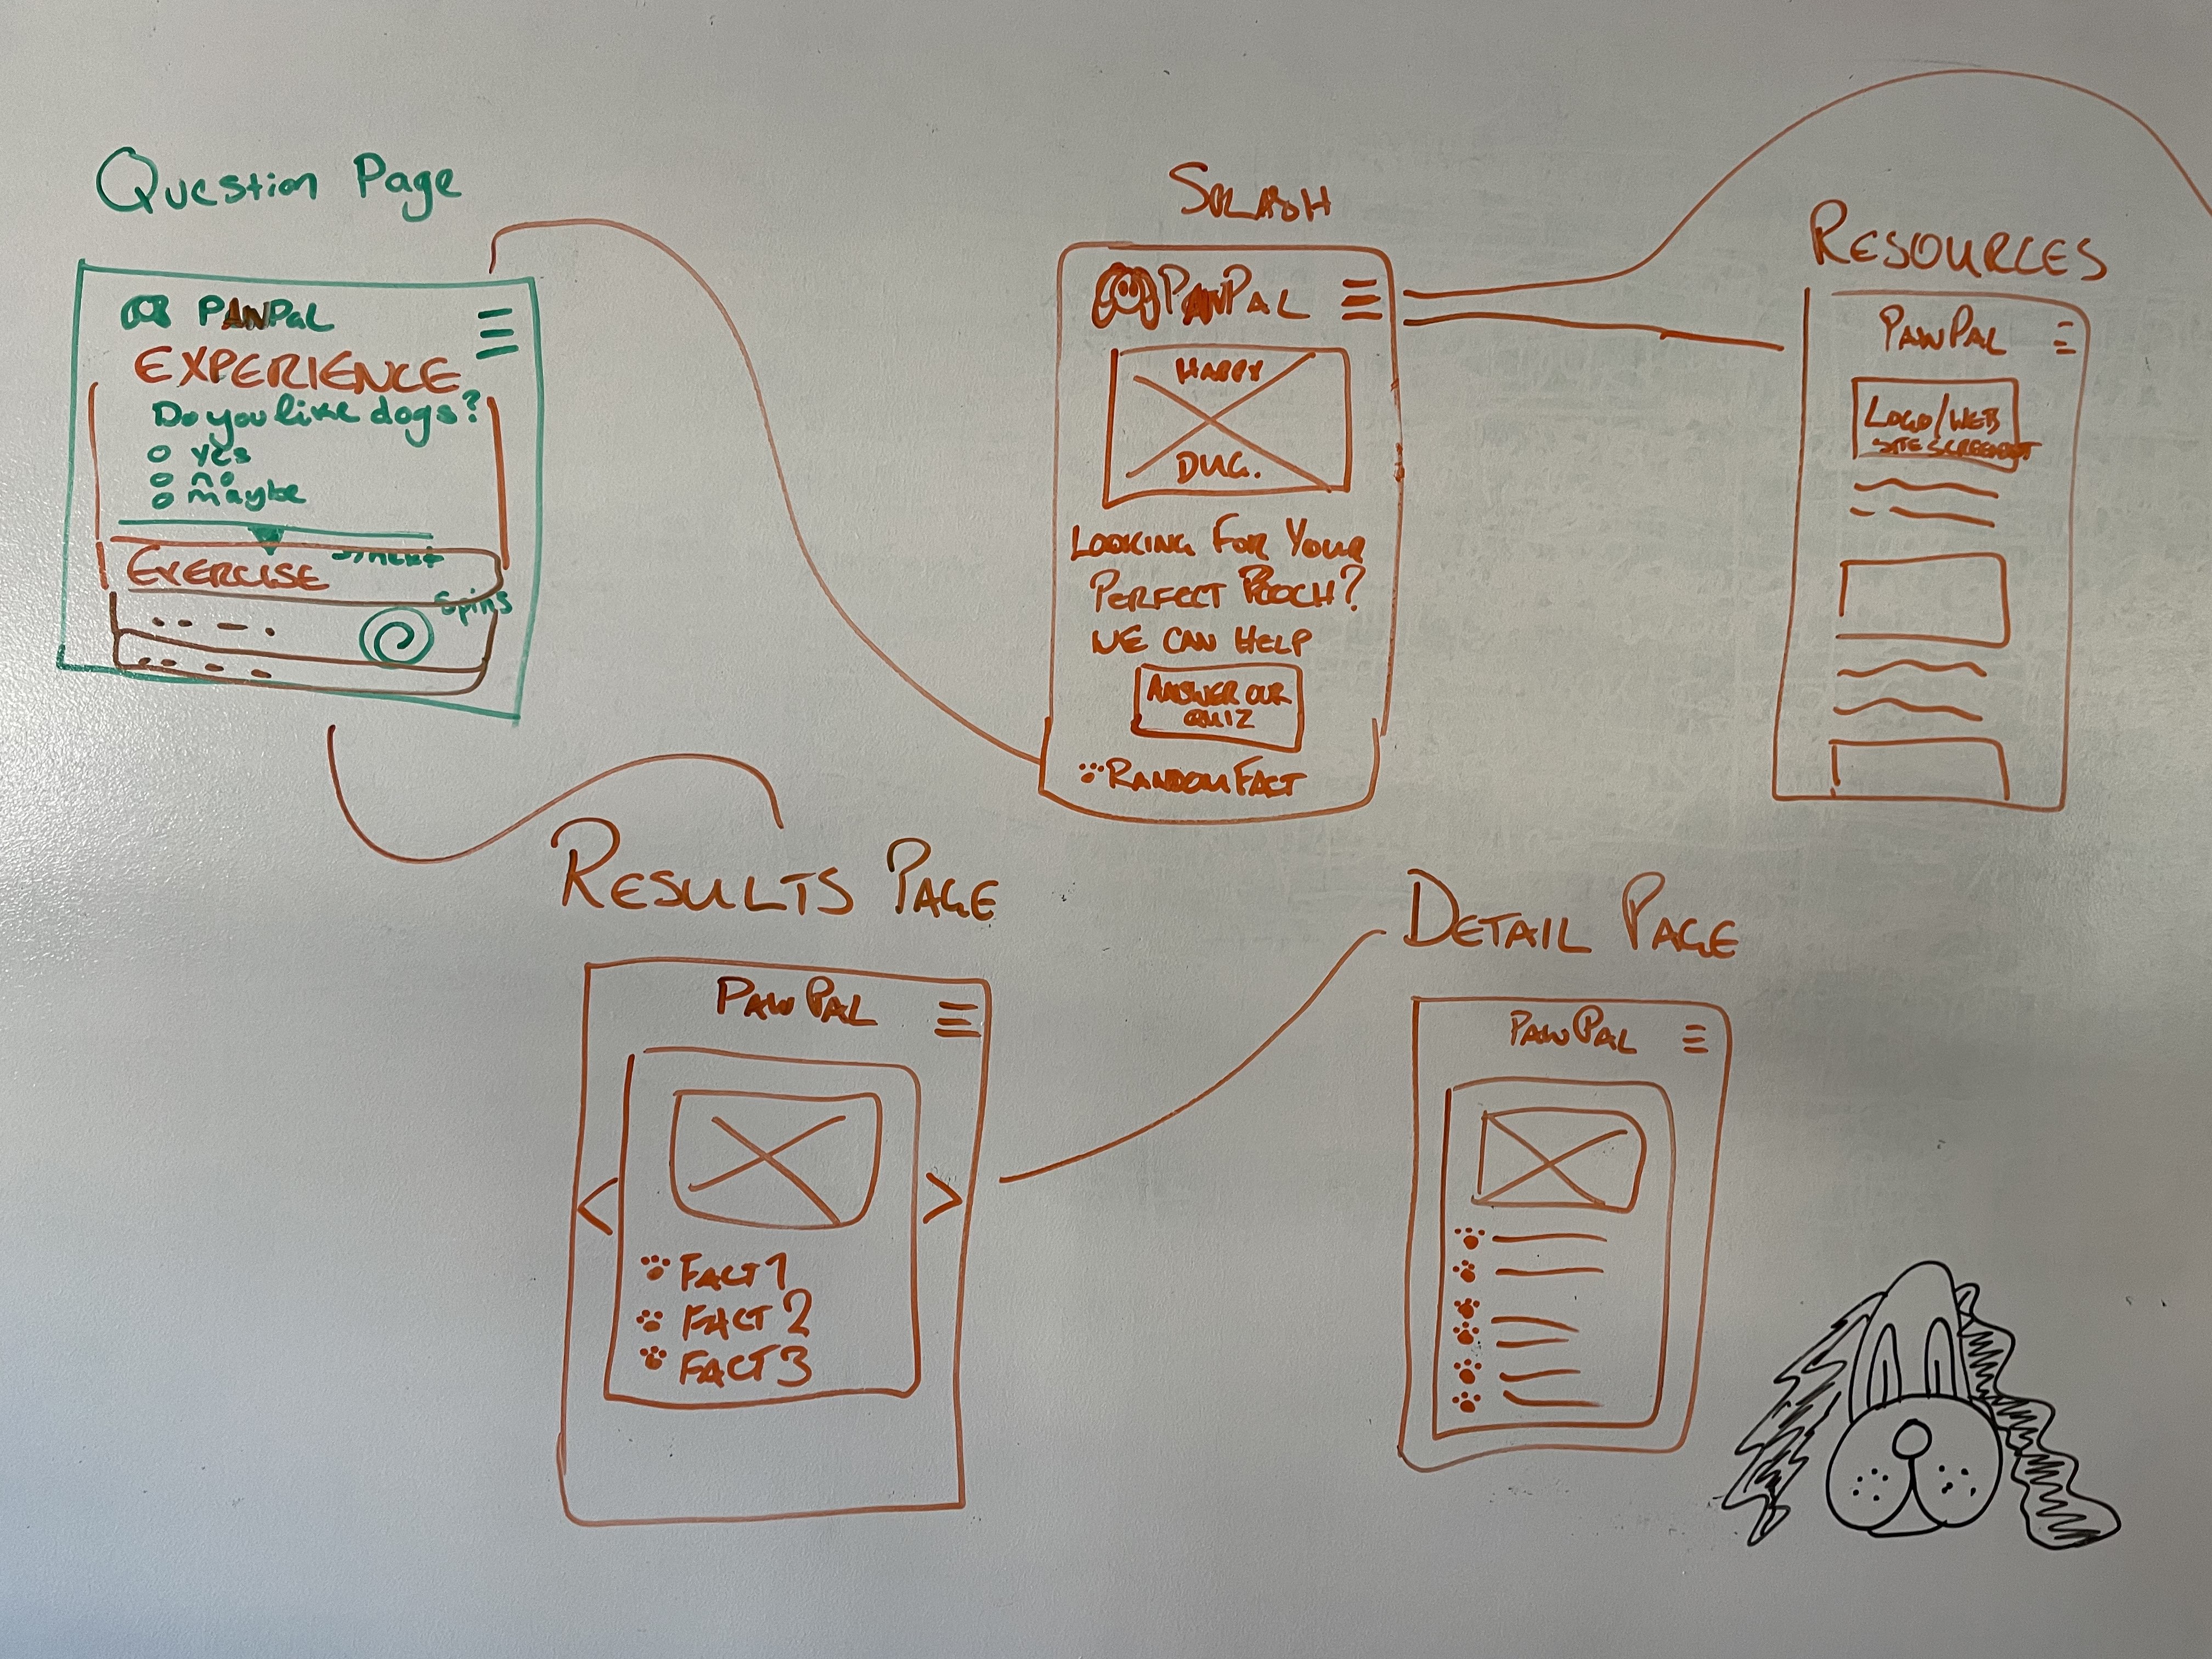 Question Page
PAWPaL
EXPERIENCE
Do you like dogs?
yes
no
maybe
EXERCISE
Spins
SPLASH
PAWPAL
HAPPY
DUG.
LOOKING FOR YOUR
PERFECT POOCH?
WE CAN HELP
ANSWER OUR
QUIZ
RANDOM FACT
RESOURCES
PAWPAL
LOGO/WEB
SITE SCREENSHOT
RESULTS PAGE
PAWPAL
< >
FACT 1
FACT 2
FACT 3
DETAIL PAGE
PAWPAL